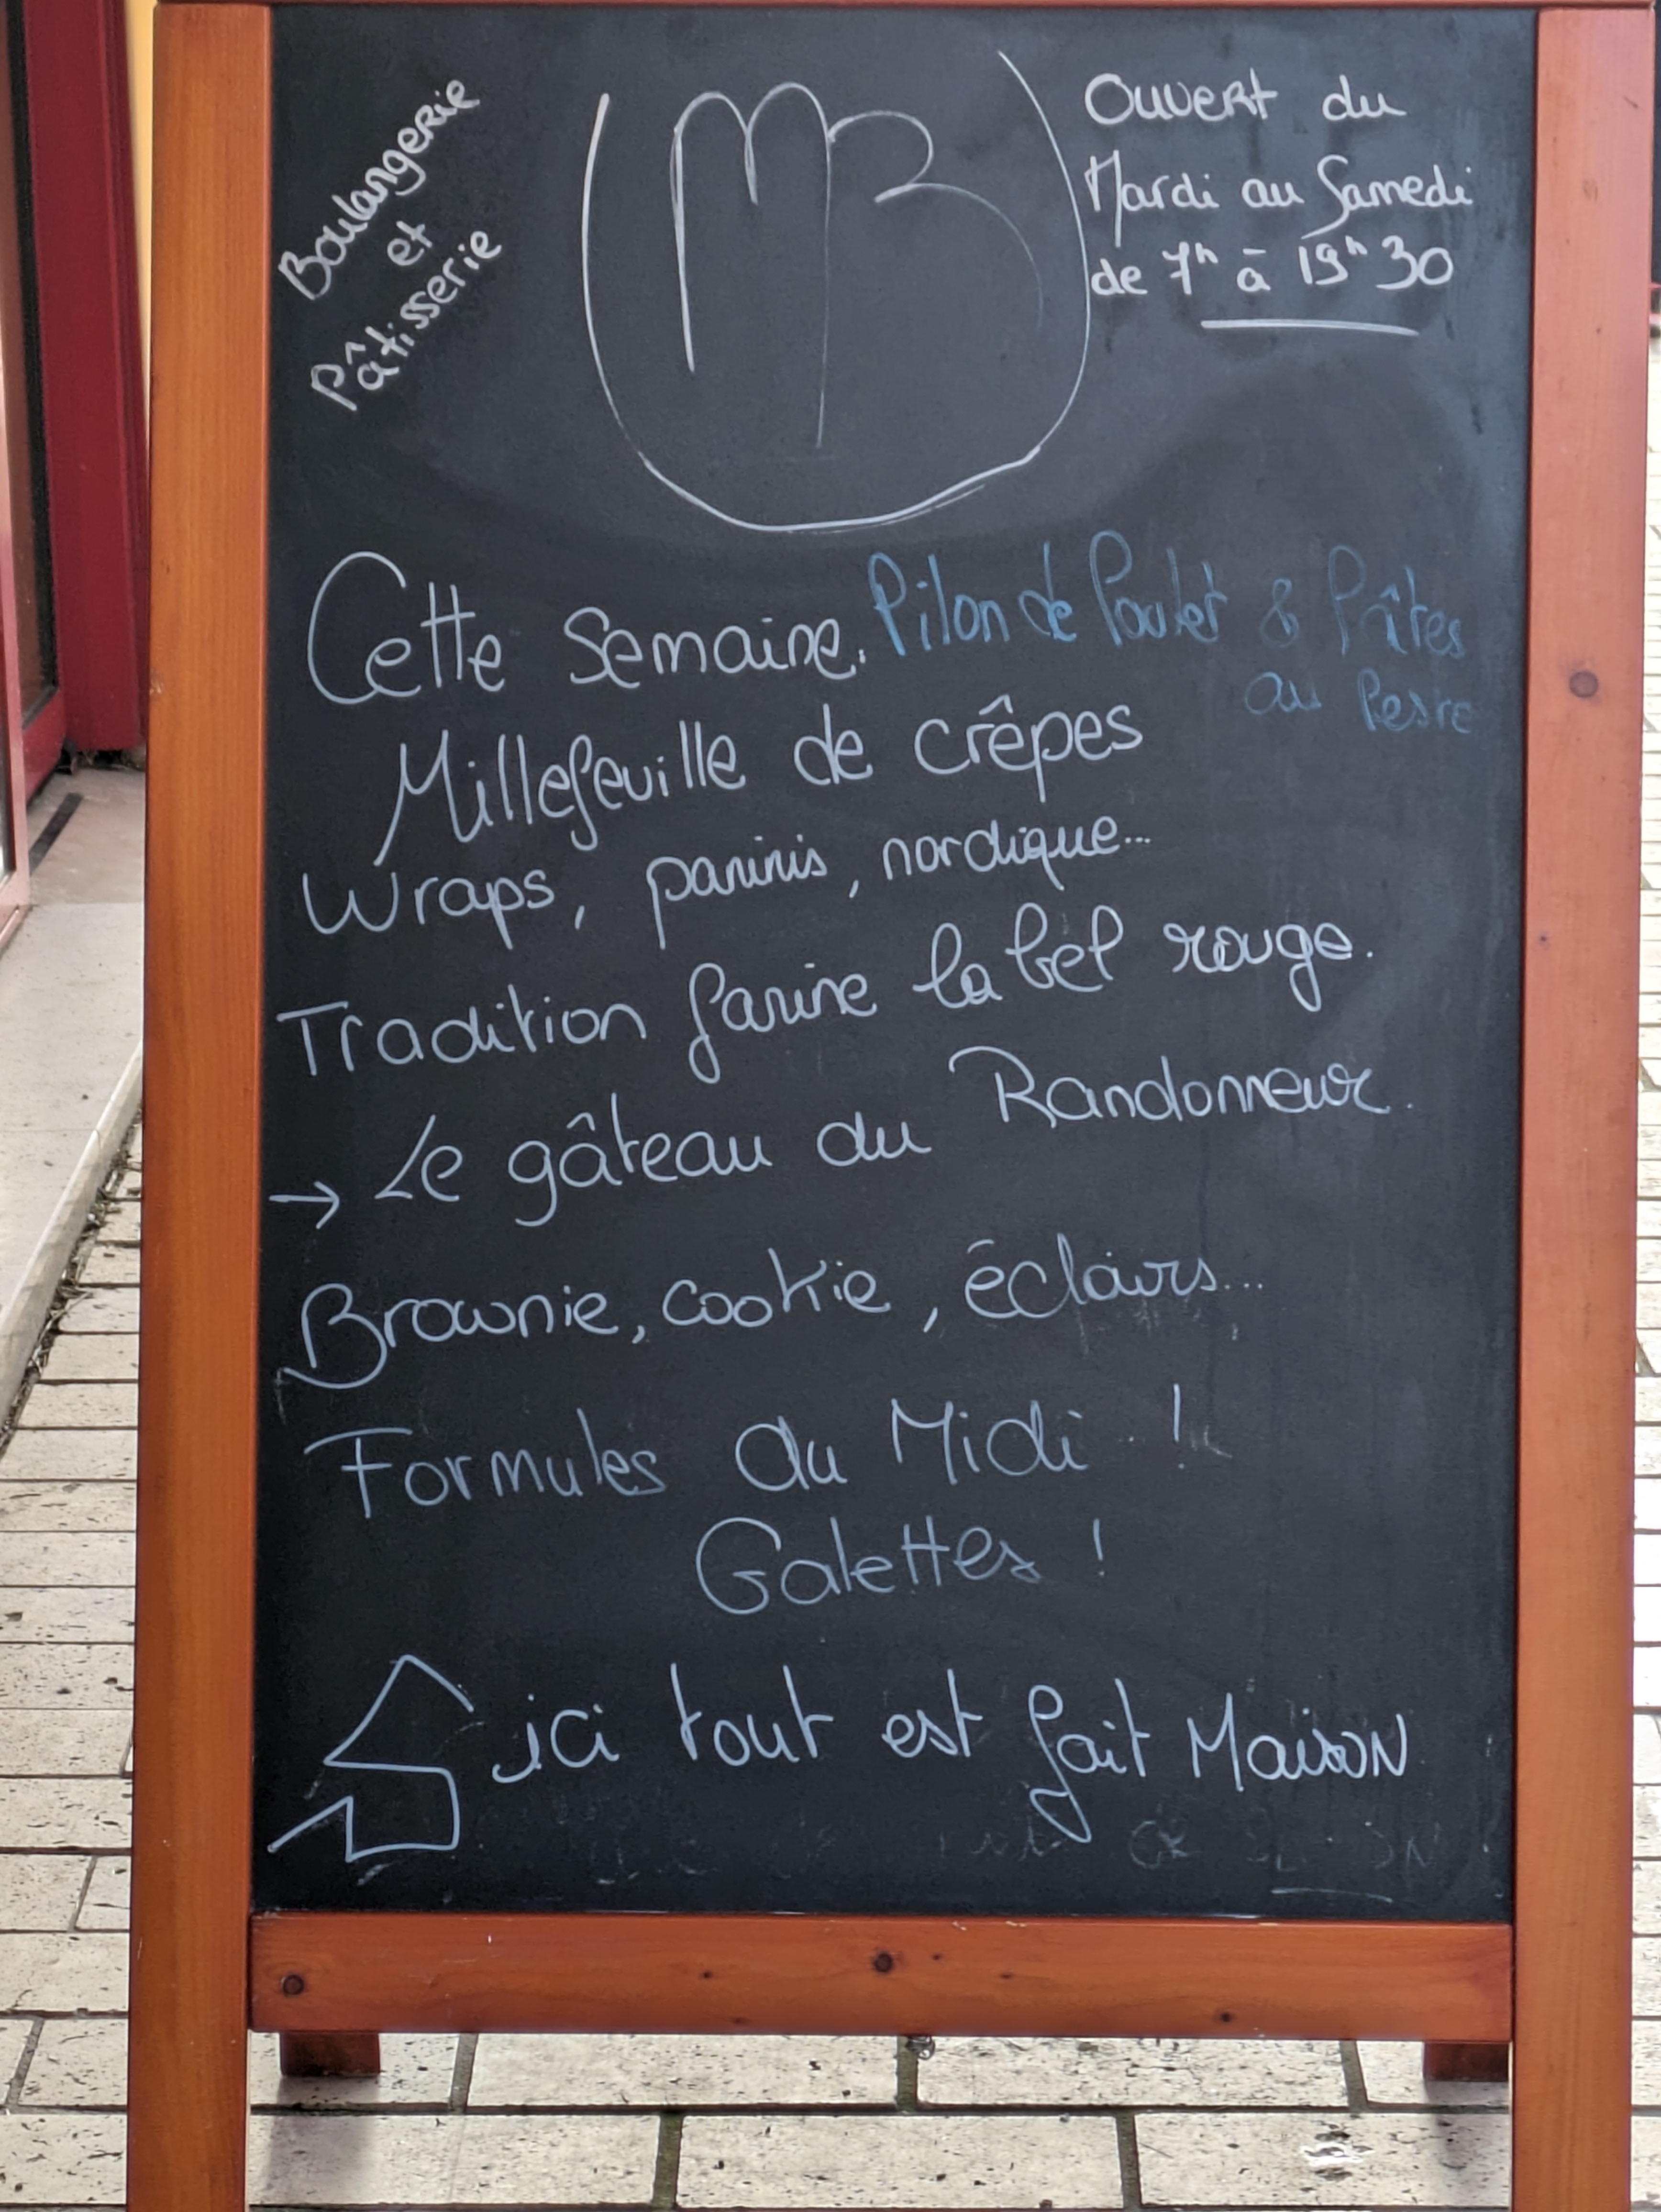 Boulangerie
et
Pâtisserie
MB
Ouvert du
Mardi au Samedi
de 7h à 19h30
Cette Semaine. Pilon de Poulet & Pâtes
au Pesto
Millefeuille de crêpes
Wraps, paninis, nordique...
Tradition farine label rouge.
→ Le gâteau du Randonneur.
Brownie, cookie, éclairs...
Formules du Midi !
Galettes !
ici tout est fait Maison